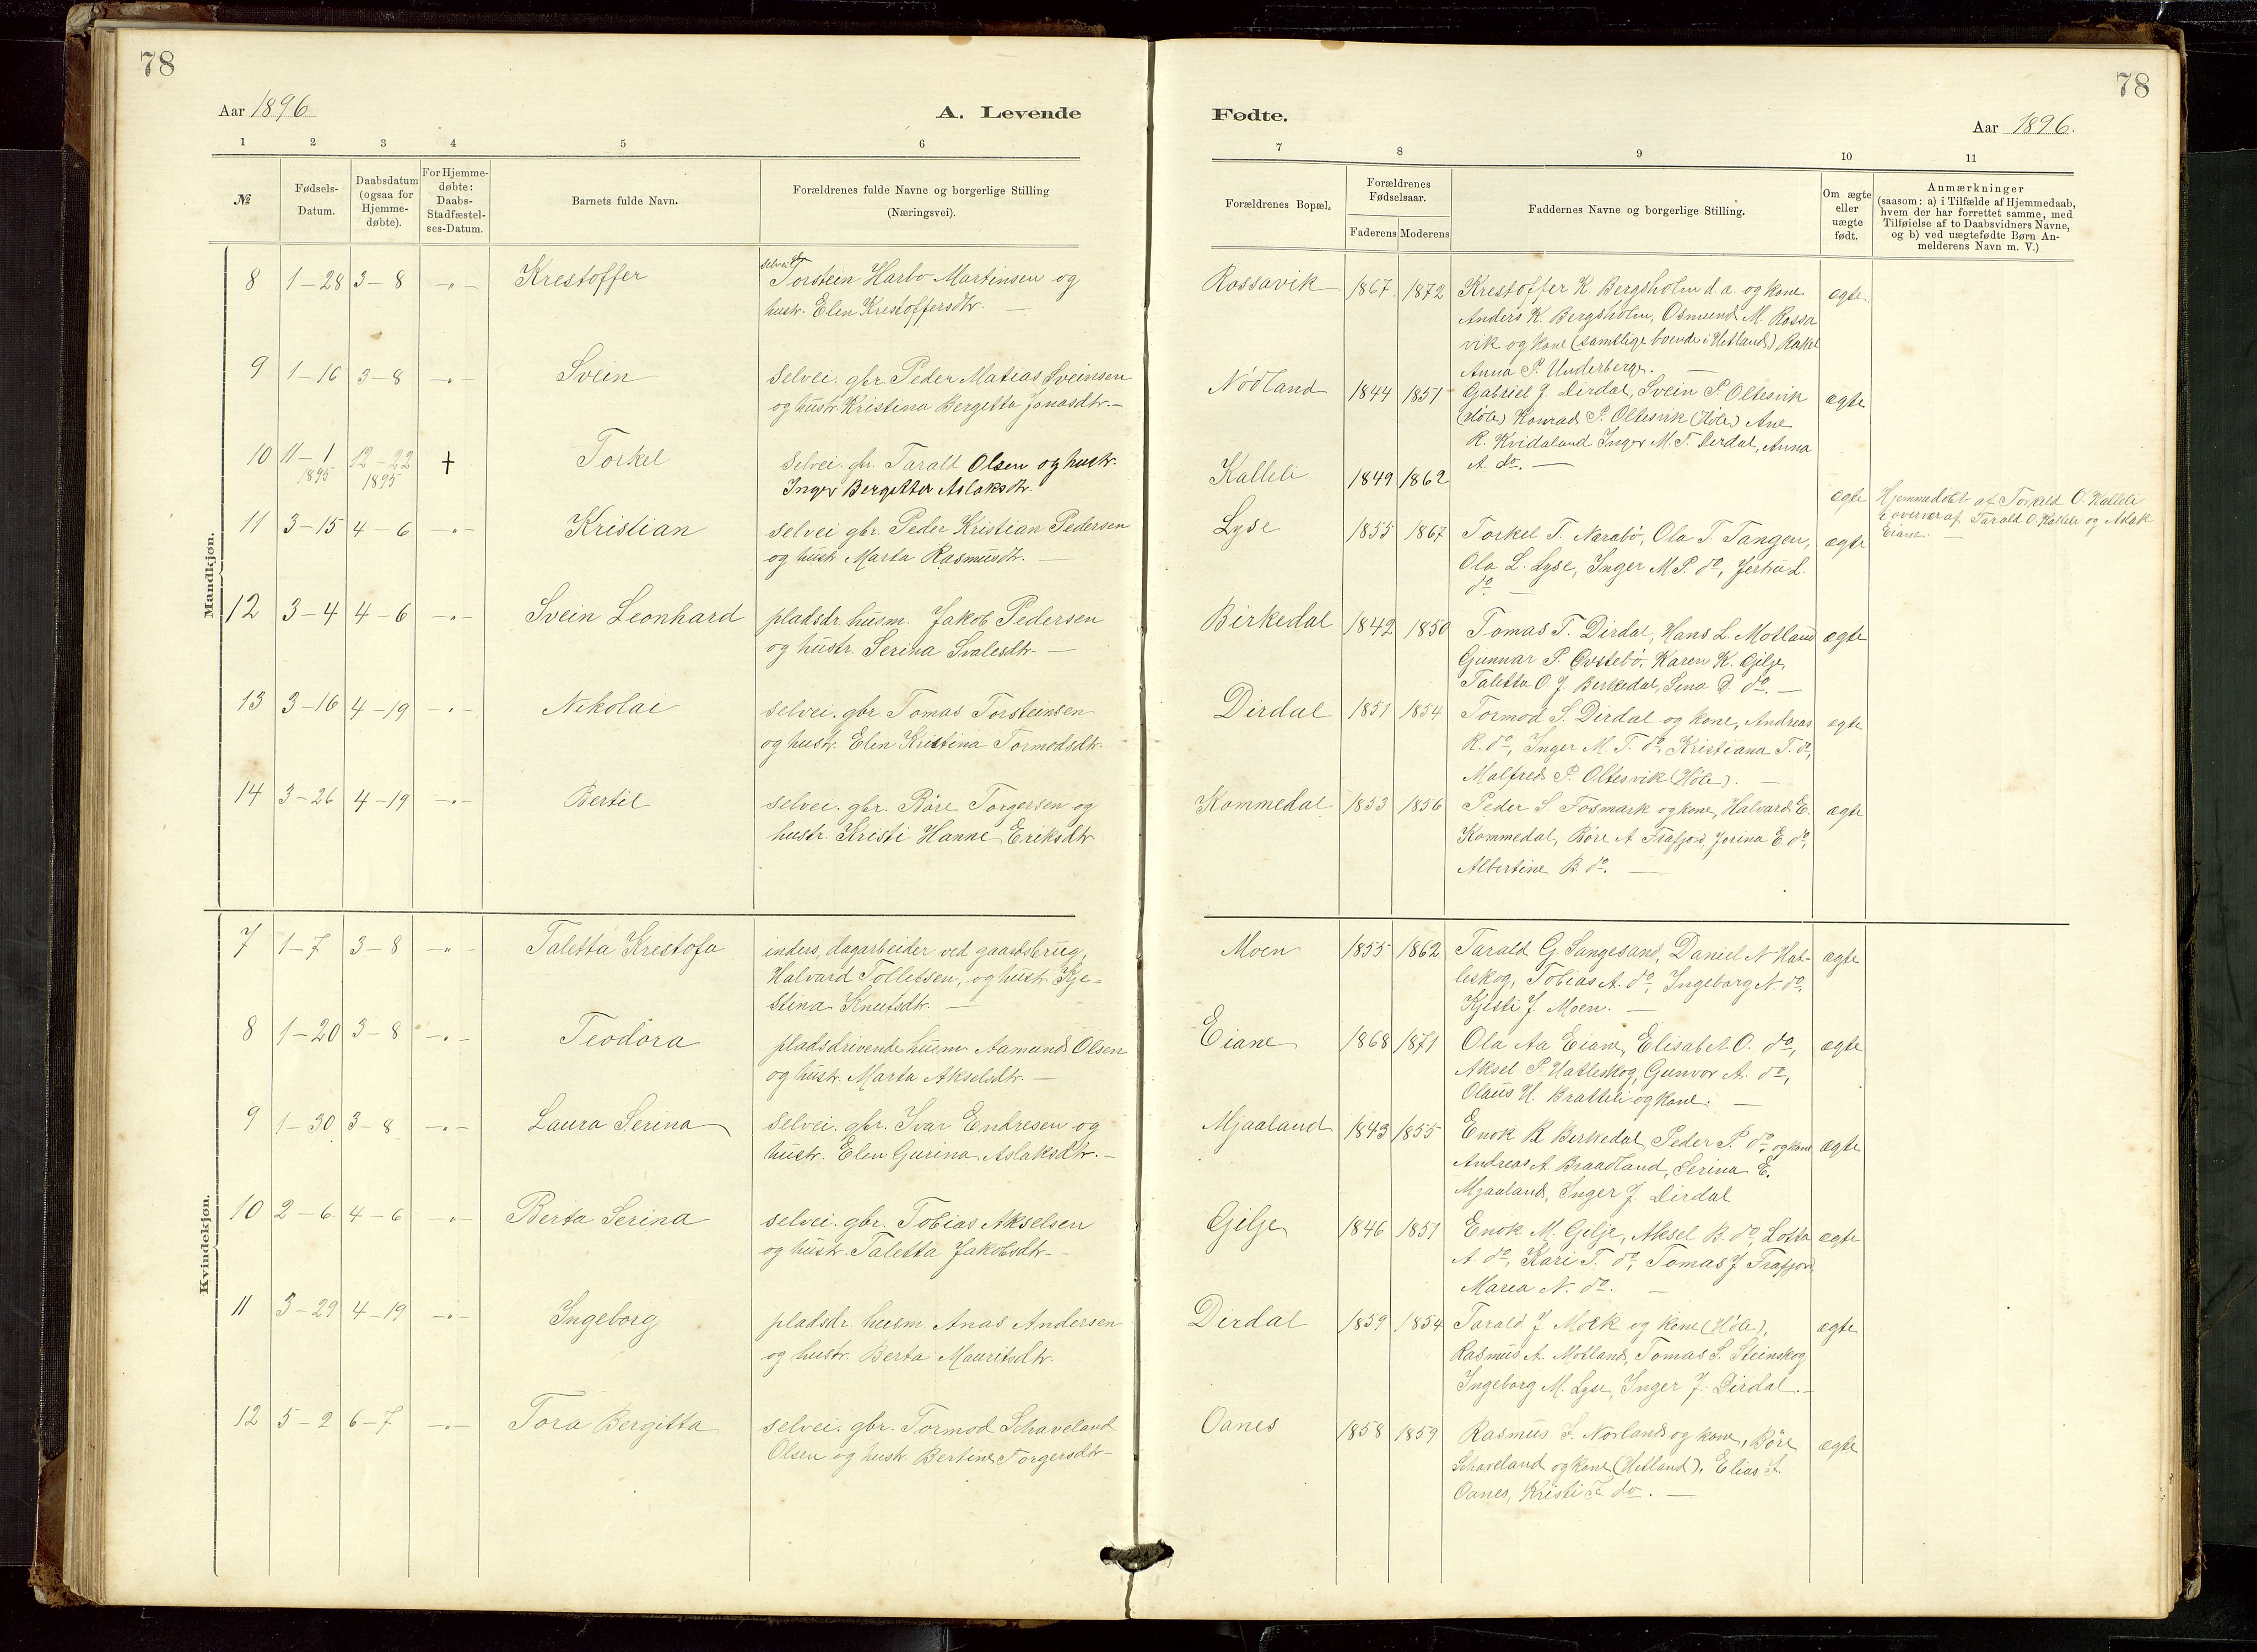 78
Aar 1896
A. Levende
1 2 3 4 5 6
№
Fødsels-
Datum.
Daabsdatum
(ogsaa for
Hjemme-
døbte).
For Hjemme-
døbte:
Daabs-
Stadfæstel-
ses-Datum.
Barnets fulde Navn.
Forældrenes fulde Navne og borgerlige Stilling
(Næringsvei).
Mandkjøn.
8 1-28 3-8 -"- Krestoffer selvei gbr Torstein Harbo Martinsen og
hustr. Elen Krestoffersdtr. —
9 1-16 3-8 -"- Svein Selvei. gbr. Peder Matias Sveinsen
og hustr. Kristina Bergetta Jonasdtr. —
10 11-1 12-22 † Torkel Selvei. gbr. Tarald Olsen og hustr.
1895 1895 Inger Bergitta Aslaksdtr.
11 3-15 4-6 -"- Kristian selvei gbr. Peder Kristian Pedersen
og hustr Marta Rasmusdtr. —
12 3-4 4-6 -"- Svein Leonhard pladsdr. husm. Jakob Pedersen
og hustr. Serina Svalesdtr. —
13 3-16 4-19 -"- Nikolai selvei. gbr. Tomas Torsteinsen
og hustr. Elen Kristina Tormodsdtr.
14 3-26 4-19 -"- Bertil selvei. gbr. Böre Torgersen og
hustr. Kristi Hanne Eriksdtr.
Kvindekjøn.
7 1-7 3-8 -"- Taletta Krestofa inders, dagarbeider ved gaardsbrug,
Halvard Tolleisen, og hustr. Kje-
stina Knutsdtr. —
8 1-20 3-8 -"- Teodora pladsdrivende husm Aamund Olsen
og hustr. Marta Akselsdtr. —
9 1-30 3-8 -"- Laura Serina selvei. gbr. Ivar Endresen og
hustr. Elen Gurina Aslaksdtr. —
10 2-6 4-6 -"- Berta Serina selvei. gbr. Tobias Akselsen
og hustr. Taletta Jakobsdtr. —
11 3-29 4-19 -"- Ingeborg pladsdr. husm. Anas Andersen
og hustr. Berta Mauritsdtr.
12 5-2 6-7 -"- Tora Bergitta selvei. gbr. Tormod Schaveland
Olsen og hustr. Bertine Torgersdtr
78
Fødte.
Aar 1896.
7 8 9 10 11
Forældrenes Bopæl.
Forældrenes
Fødselsaar.
Faderens Moderens
Faddernes Navne og borgerlige Stilling.
Om ægte
eller
uægte
født.
Anmærkninger
(saasom: a) i Tilfælde af Hjemmedaab,
hvem der har forrettet samme, med
Tilføielse af to Daabsvidners Navne,
og b) ved uægtefødte Børn An-
melderens Navn m. V.)
Rossavik 1867. 1872 Krestoffer K. Bergsholm d. a. og kone ægte.
Anders K. Bergsholm, Osmund M. Rossa
vik og kone (samtlige boende i Hetland) Rakel
Anna P. Underberge. —
Nödland 1844 1851 Gabriel J. Dirdal, Svein P. Oltesvik ægte
(Höle) Konrad P. Oltesvik (Höle) Ane
R. Kvidaland Inger M. T. Dirdal, Anna
A. do. —
Kalleli 1849 1862 ægte Hjemmedöbt af Torkild O. Kalleli
i overvær af Tarald O. Kalleli og Aslak
Eiane. —
Lyse 1855 1867 Torkel T. Narabö, Ola T. Tangen, ægte
Ola L. Lyse, Inger M P. do, Jertru L.
do. —
Birkedal 1842 1850 Tomas T. Dirdal, Hans L. Motland ægte
Gunnar P. Övstebö, Karen K. Gilje,
Taletta O J. Birkedal, Sena D. do. —
Dirdal 1851 1854 Tormod S. Dirdal og kone, Andreas ægte
R. do, Inger M. T. do, Kristiana T. do,
Malfred P. Oltesvik (Höle). —
Kommedal 1853 1856 Peder S. Fosmark og kone, Halvard E. ægte
Kommedal, Böre A Frafjord, Jorina E. do,
Albertine B. do. —
Moen 1855 1862 Tarald G Sangesand, Daniel N Hat- ægte
leskog, Tobias A. do, Ingeborg N do,
Kjesti J. Moen. —
Eiane 1868 1871 Ola Aa Eiane, Elisabet O. do, ægte
Aksel P. Hatleskog, Gunvor A. do,
Olaus H. Bratteli og kone. —
Mjaaland 1843 1855 Enok R Birkedal, Peder P. do og kone ægte
Andreas A. Braadland, Serina E.
Mjaaland, Inger J. Dirdal
Gilje 1846 1851 Enok M. Gilje, Aksel B. do, Lotta ægte
A. do, Kari T. do, Tomas J. Frafjord,
Marea N. do. —
Dirdal 1859 1854 Tarald J Mørk og kone (Höle), ægte
Rasmus A. Motland, Tomas S. Steinskog
Ingeborg M. Lyse, Inger J. Dirdal. —
Oanes 1858 1859 Rasmus J. Norland og kone, Böre ægte
Schaveland og kone (Hetland), Elias
Oanes, Kristi T do. —